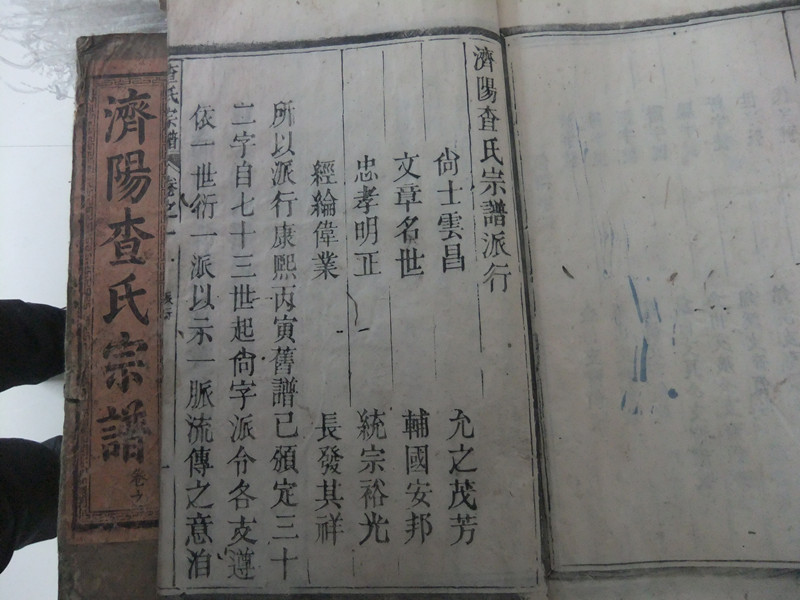 濟陽查氏宗譜派行
尚士雲昌 允之茂芳
文章名世 輔國安邦
忠孝明正 統宗裕光
經綸偉業 長發其祥
所以派行康熙丙寅舊譜已頒定三十
二字自七十三世起尚字派今各支遵
依一世衍一派以示一脈流傳之意治
查氏宗譜
濟陽查氏宗譜